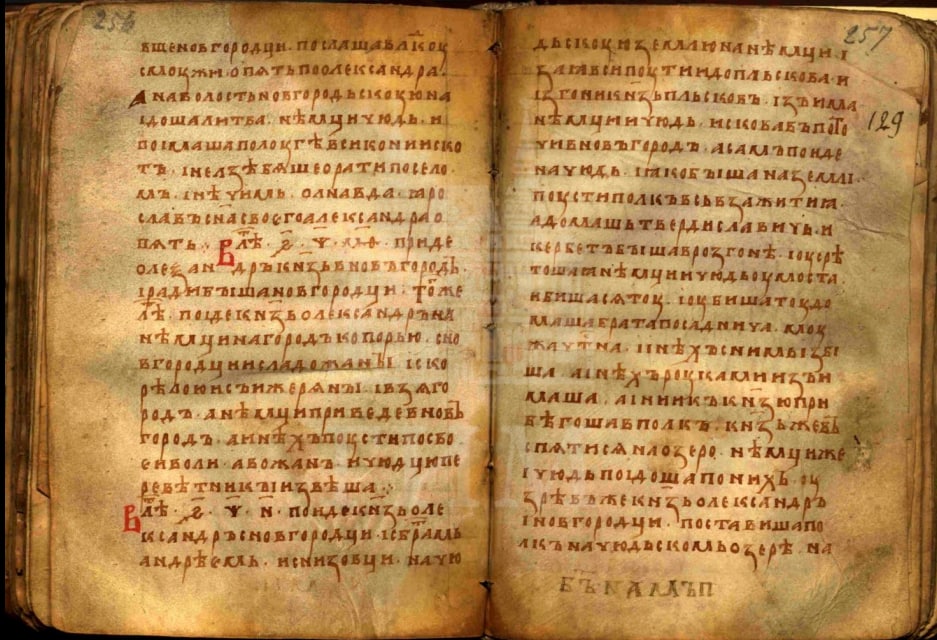 256
вшеновгородци · послашавлк҃оу
смоужи · опятьпоолександра ·
анаволостьновгородьскоуюна
идошалитва · нѣмци чюдь · и
поимашаполоугѣвсикониискѡ
тъ · інелзѣбяшеоратипосело
мъ · інѣчимь · олнавда · ꙗро
славъснасвоегоалександрао
пять · В лѣ҃ · ҂ѕ҃ · ѱ҃ · м҃ѳ · приде
олеѯандръкнѧ҃зьвновъгородъ ·
ірадибышановгородци · томже
лѣ҃ · поидекнѧ҃зьолександръна
нѣмцинагородъкопорью · сно
вгородциисладожаны · іско
рѣлоюисъижеряны · івзяго
родъ · анѣмциприведевновъ
городъ · аинѣхъпоустипосво
еиволи · авожанъ ичюдцюпе
ревѣтникыизвѣша ·
В лѣ҃ · ҂ѕ҃ · ѱ҃ · н҃ · поидекнѧ҃зьоле
ксандръсновгородци · ісбратомь
андрѣемь · иснизовци · начю
257
дьскоуюземлюнанѣмци · і
заꙗвсипоутиидопльскова · и
ізгоникнѧ҃зьпльсковъ · ізъима
нѣмциичюдь · исковавъпото
чивновъгородъ · асамъпоиде
начюдь · ꙗкобышаназемлі ·
поустиполквсьвзажитиꙗ ·
адомашьтвердиславичь · и
кербетъбышаврозгонѣ · іоусрѣ
тошаꙗнѣмциичюдьоумоста ·
ибишасятоу · іоубишатоудо
машабратапосаднича · моу
жачтна · іінѣхъснимьізби
ша · аінѣхъроукамиизъи
маша · аінииккнѧ҃зюпри
бѣгошавполкъ · кнѧ҃зьжевъ
спятисянаозеро · нѣмциже
ічюдьпоідошапонихъ · оу
зрѣвъжекнѧ҃зьолександръ
іновгородци · поставишапо
лкъначюдьскомьозерѣ · на
129